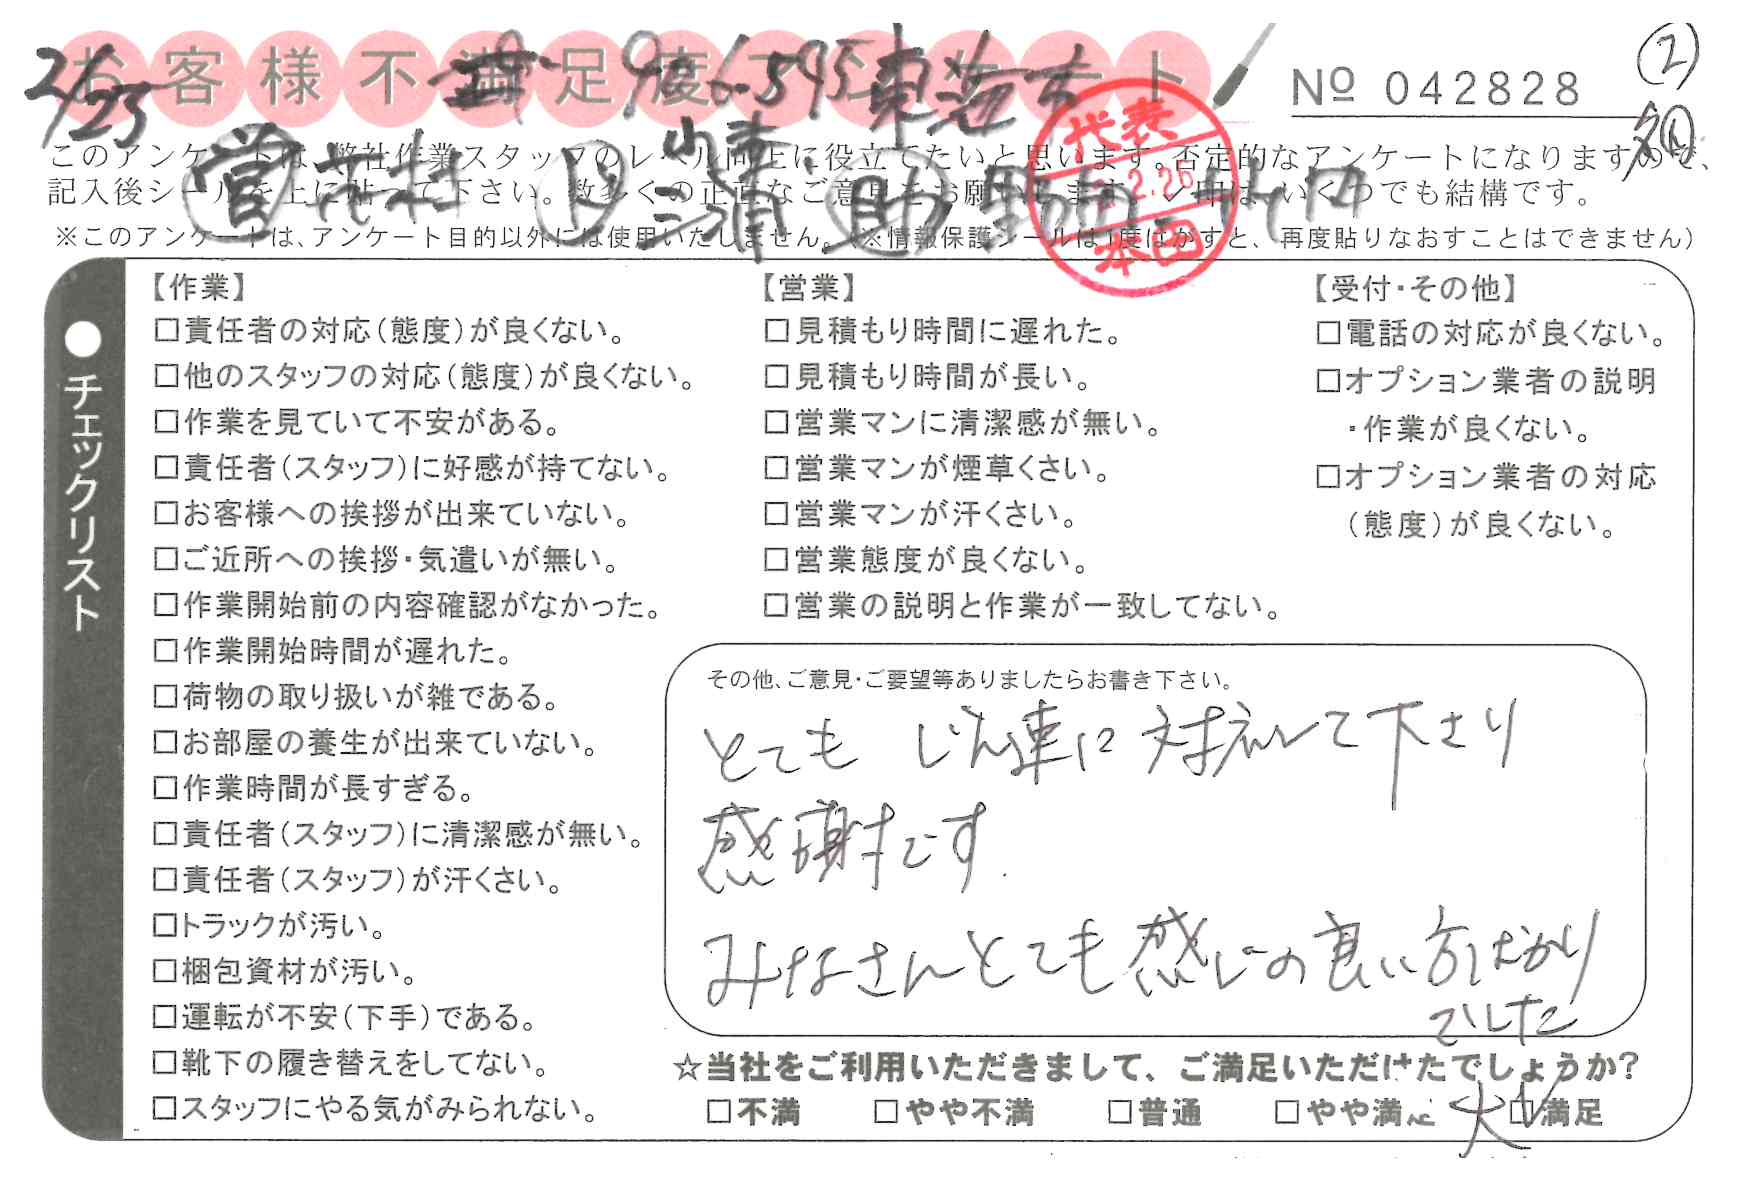 お客様不満足度アンケート
No 042828
②
2/23
96-595 東海市
代表
2.26
本田
このアンケートは、弊社作業スタッフのレベル向上に役立てたいと思います。否定的なアンケートになりますので、
記入後シールを上に貼って下さい。数多くの正直なご意見をお願いします。✓印は、いくつでも結構です。
※このアンケートは、アンケート目的以外には使用いたしません。(※情報保護シールは1度はがすと、再度貼りなおすことはできません)
●チェックリスト
【作業】
□責任者の対応(態度)が良くない。
□他のスタッフの対応(態度)が良くない。
□作業を見ていて不安がある。
□責任者(スタッフ)に好感が持てない。
□お客様への挨拶が出来ていない。
□ご近所への挨拶・気遣いが無い。
□作業開始前の内容確認がなかった。
□作業開始時間が遅れた。
□荷物の取り扱いが雑である。
□お部屋の養生が出来ていない。
□作業時間が長すぎる。
□責任者(スタッフ)に清潔感が無い。
□責任者(スタッフ)が汗くさい。
□トラックが汚い。
□梱包資材が汚い。
□運転が不安(下手)である。
□靴下の履き替えをしてない。
□スタッフにやる気がみられない。
【営業】
□見積もり時間に遅れた。
□見積もり時間が長い。
□営業マンに清潔感が無い。
□営業マンが煙草くさい。
□営業マンが汗くさい。
□営業態度が良くない。
□営業の説明と作業が一致してない。
【受付・その他】
□電話の対応が良くない。
□オプション業者の説明
・作業が良くない。
□オプション業者の対応
(態度)が良くない。
その他、ご意見・ご要望等ありましたらお書き下さい。
とても じん速に 対応して下さり
感謝です.
みなさんとても感じの良い方ばかり
でした
☆当社をご利用いただきまして、ご満足いただけたでしょうか?
□不満 □やや不満 □普通 □やや満足 大 ☑満足